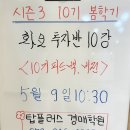 시즌3 10기 봄학기
화요 투자반 10강
<10기 피드백, 비전>
5월 9일 10:30
탑플러스 경매학원